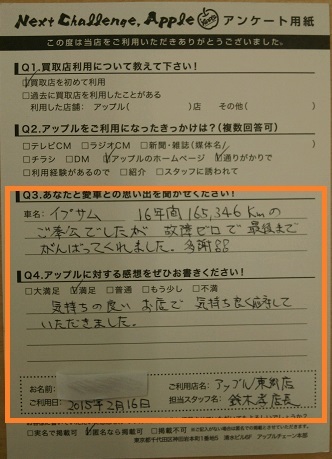 Next Challenge. Apple アンケート用紙
この度は当店をご利用いただきありがとうございました。
Q1.買取店利用について教えて下さい!
☑買取店を初めて利用
□過去に買取店を利用したことがある
利用した店舗: アップル( )店 その他( )
Q2.アップルをご利用になったきっかけは?(複数回答可)
□テレビCM □ラジオCM □新聞・雑誌(媒体名 )
□チラシ □DM ☑アップルのホームページ ☑通りがかりで
□利用経験があるので □紹介 □スタッフに誘われて
Q3.あなたと愛車との思い出を聞かせてください!
車名: イプサム 16年間 165,346Kmの
ご奉公でしたが 故障ゼロで 最後まで
がんばってくれました。多謝
Q4.アップルに対する感想をぜひお書きください!
□大満足 ☑満足 □普通 □もう少し □不満
気持ちの良い お店で 気持ち良く応対して
いただきました。
お名前:
ご利用日: 2015年2月16日
ご利用店名: アップル 店
担当スタッフ名: 鈴木 店長
□実名で掲載可 ☑匿名なら掲載可 □掲載不可
東京都千代田区神田岩本町1番地5 清水ビル6F アップルチェーン本部